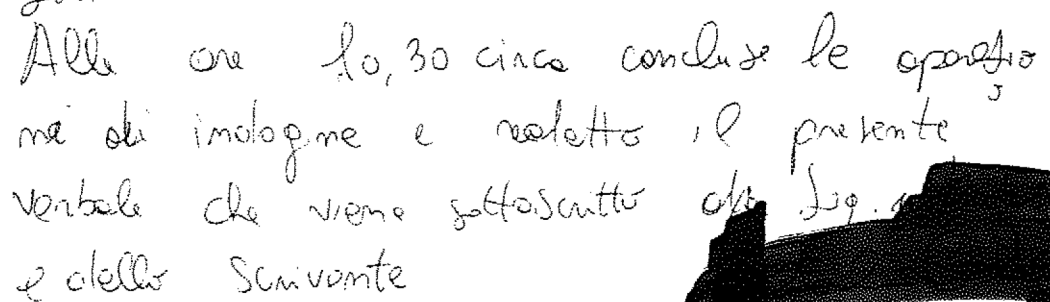 Alle ore 10,30 circa concluse le operazio
ni di indagine e redatto il presente
verbale che viene sottoscritto dal Sig.
e dallo scrivente